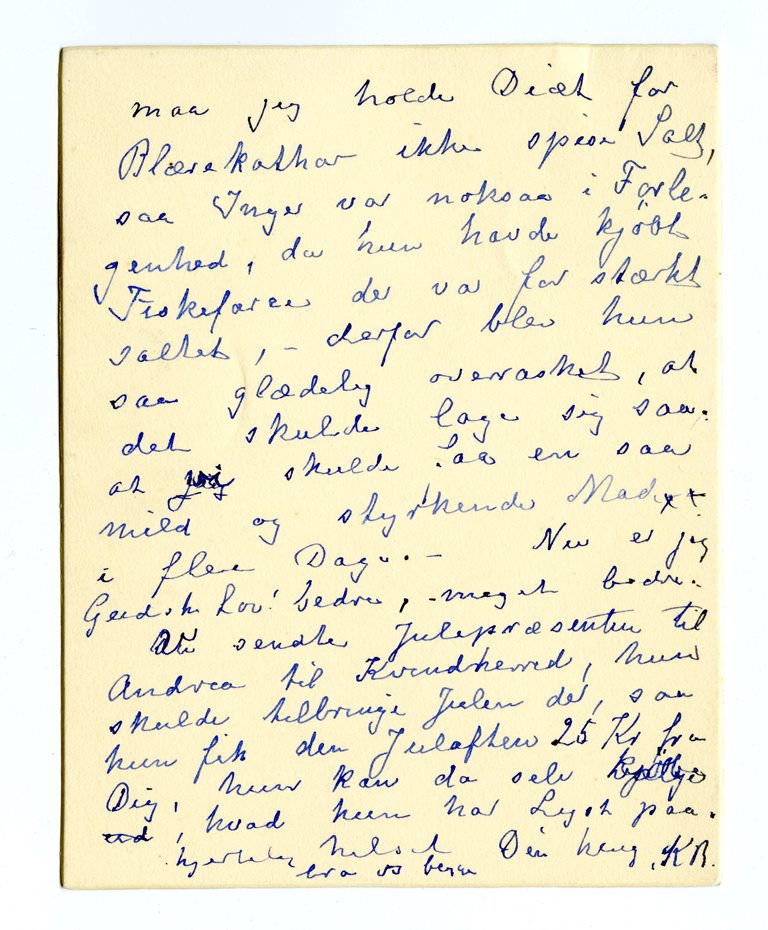 maa jeg holde Diæt for
Blærekathar ikke spise Salt,
saa Inger var noksaa i Forle-
genhed, da hun havde kjöbt
Fiskefarce der var for stærkt
saltet, – derfor blev hun
saa glædelig overrasket, at
det skulde lage sig saa.
at jeg skulde faa en saa
mild og styrkende Mad
i flere Dage. – Nu er jeg
Gudske Lov! bedre, – meget bedre.
Vi sendte Julepræsenten til
Andrea til Kvindherred, hun
skulde tilbringe Julen der, saa
hun fik den Julaften 25 Kr fra
Dig, hun kan da selv
, hvad hun har Lyst paa.
hjertelig hilset Din heng. KB.
fra os begge